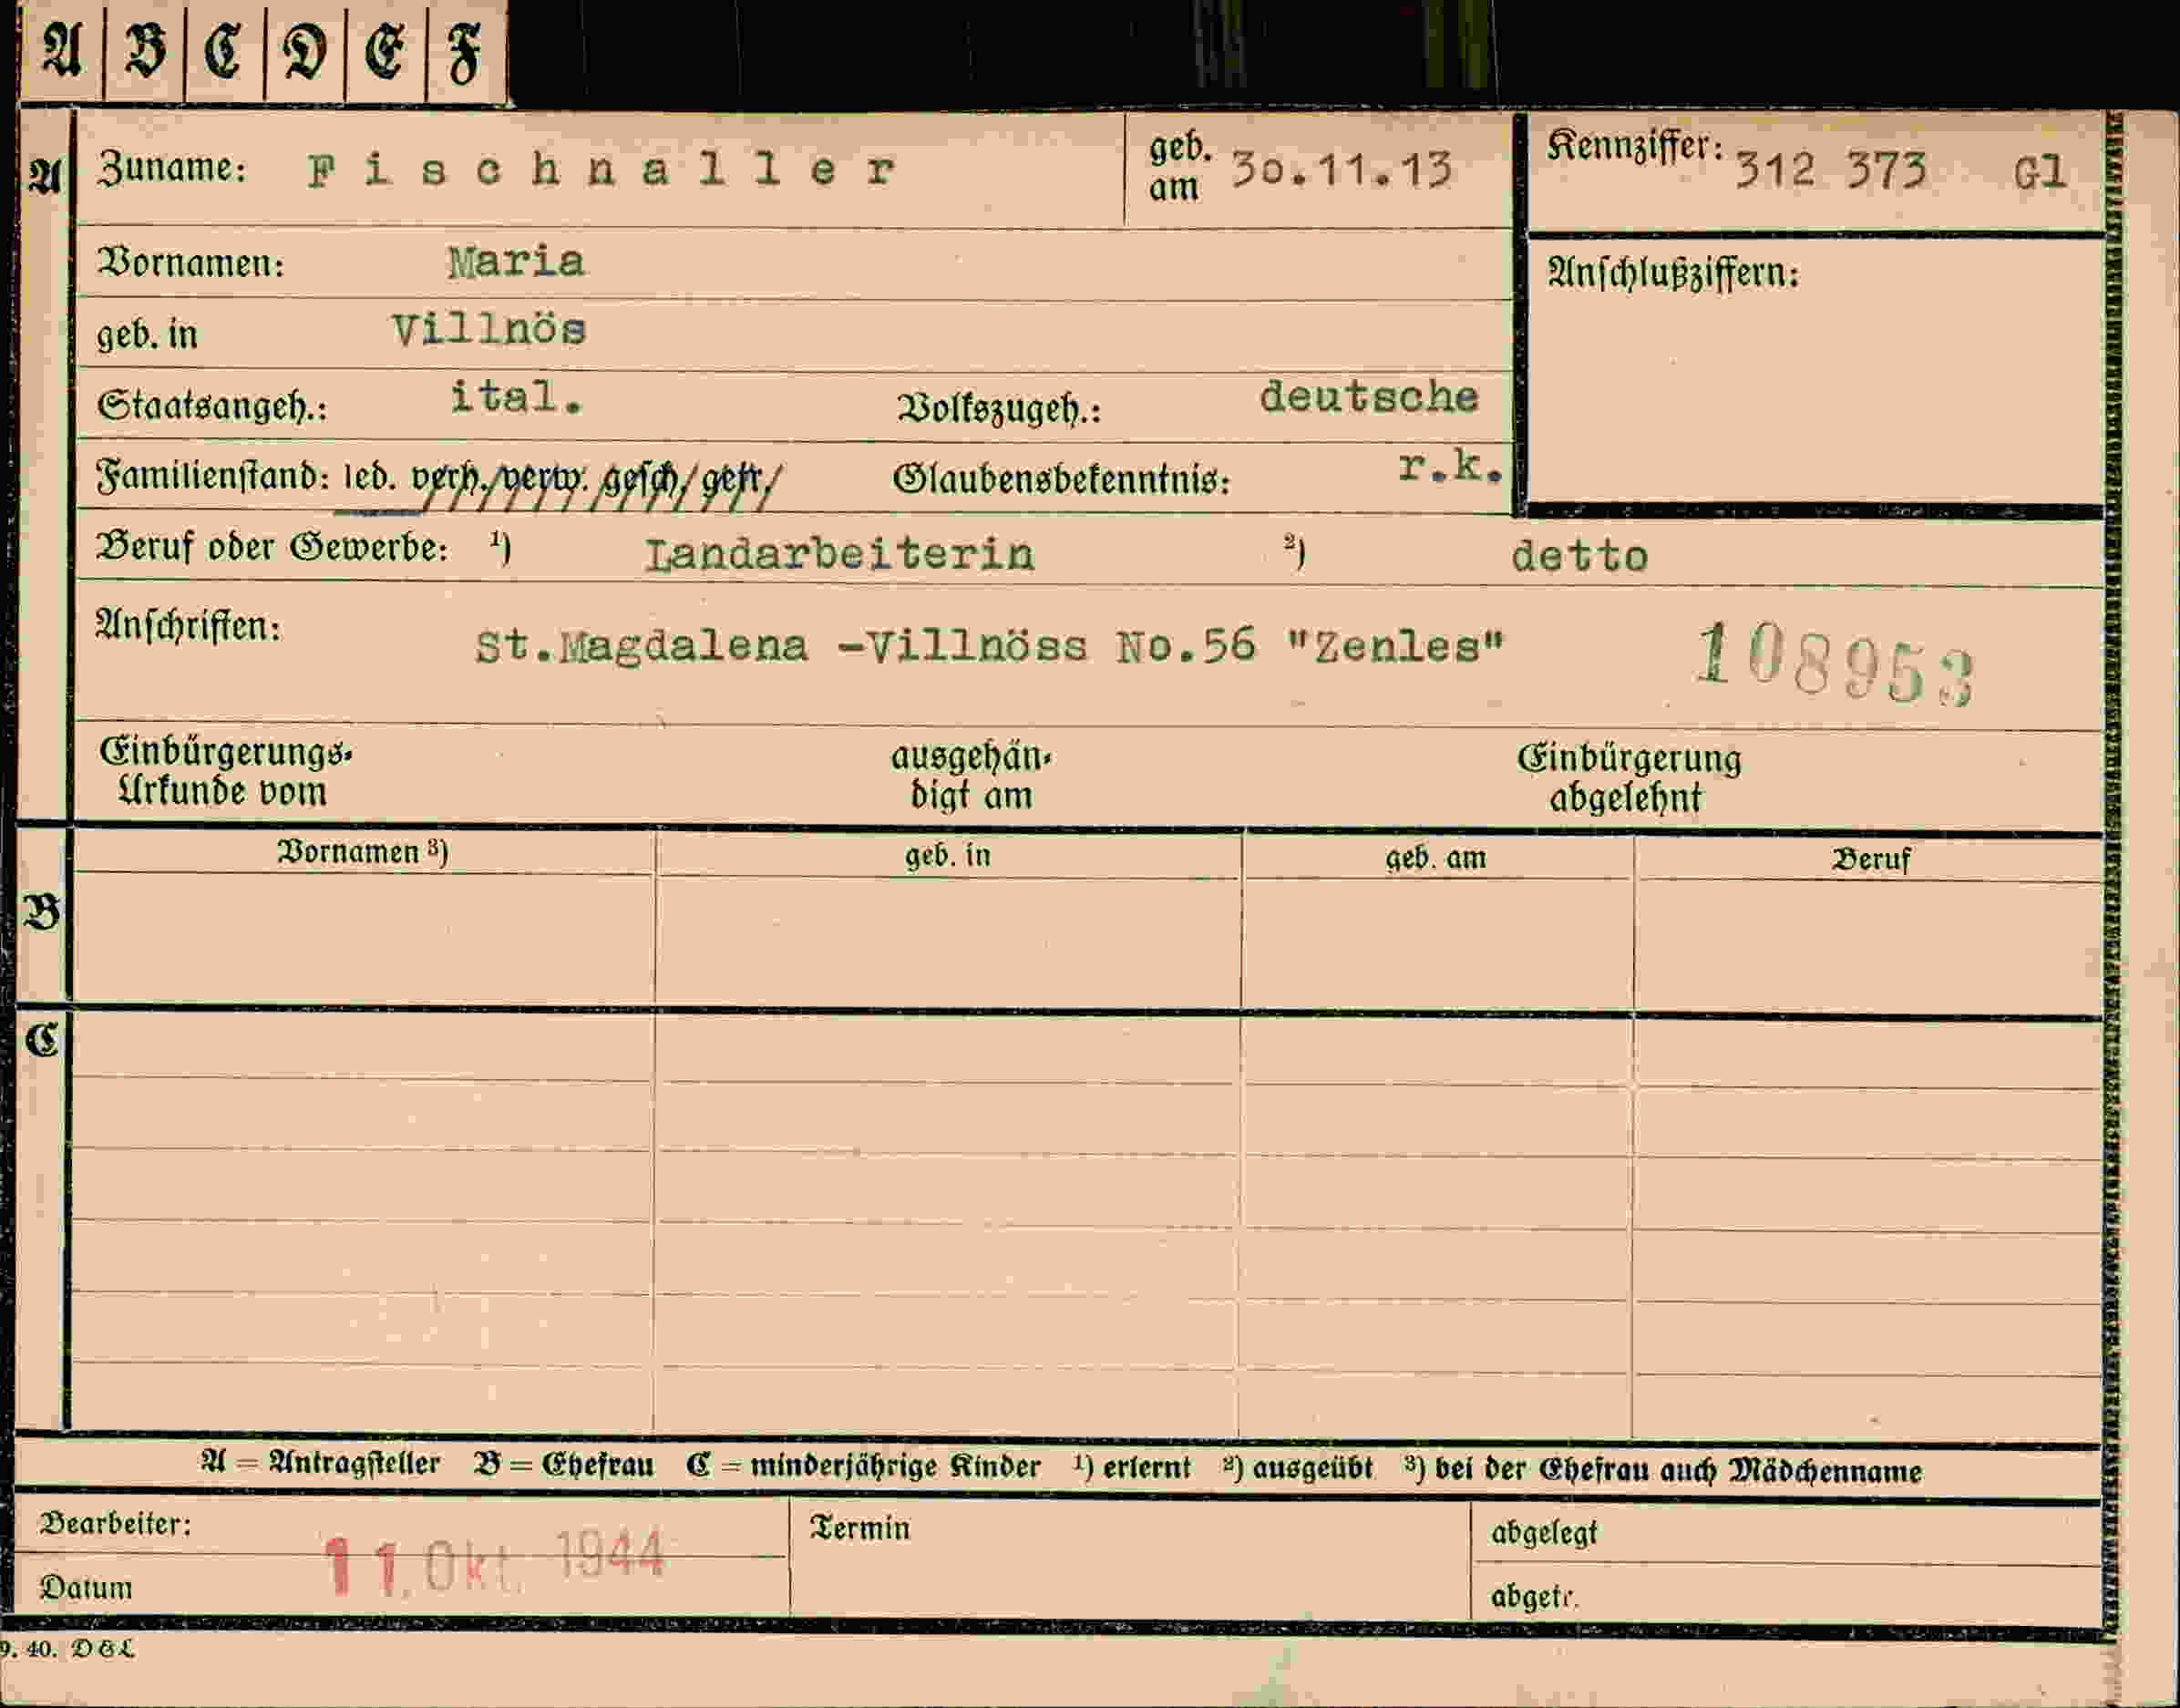 A B C D E F
A Zuname: Fischnaller geb. am 30.11.13 Kennziffer: 312 373 Gl
Vornamen: Maria Anschlußziffern:
geb. in Villnös
Staatsangeh.: ital. Volkszugeh.: deutsche
Familienstand: led. verh. verw. gesch. getr. Glaubensbekenntnis: r.k.
Beruf oder Gewerbe: 1) Landarbeiterin 2) detto
Anschriften: St.Magdalena -Villnöss No.56 "Zenles" 108953
Einbürgerungs- ausgehän- Einbürgerung
Urkunde vom digt am abgelehnt
Vornamen 3) geb. in geb. am Beruf
B
C
A = Antragsteller B = Ehefrau C = minderjährige Kinder 1) erlernt 2) ausgeübt 3) bei der Ehefrau auch Mädchenname
Bearbeiter: Termin abgelegt
11. Okt. 1944
Datum abgetr.
9. 40. D & L